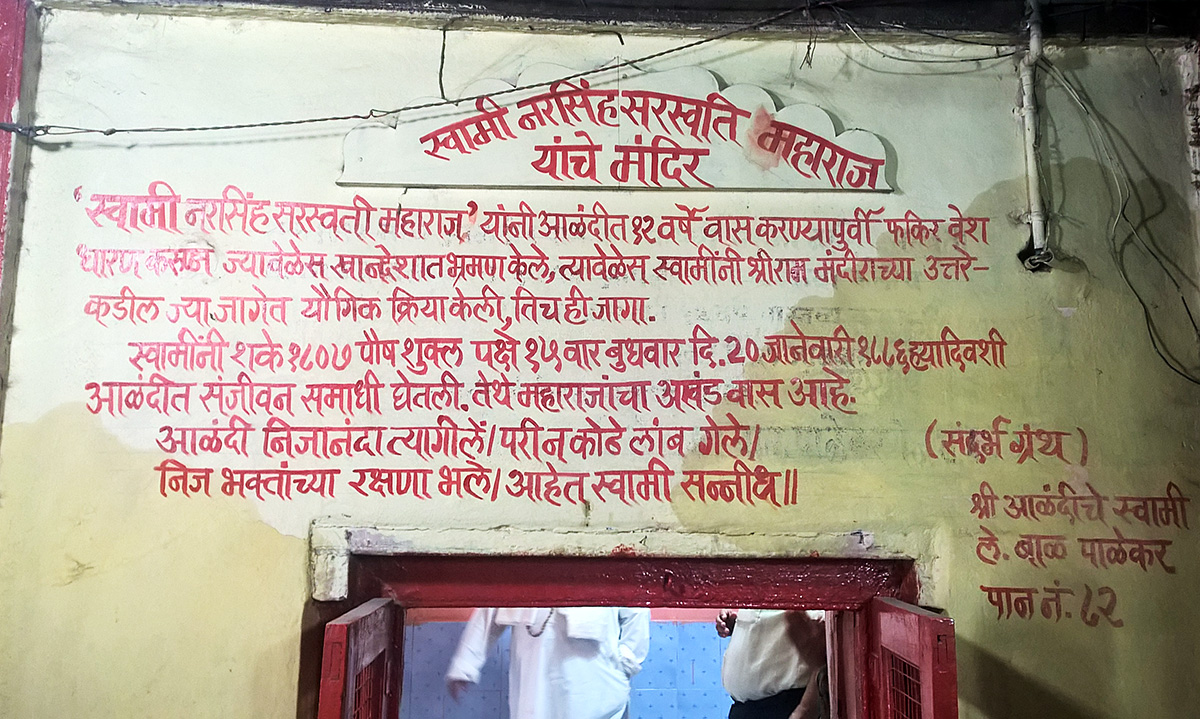 स्वामी नरसिंह सरस्वति महाराज
यांचे मंदिर
'स्वामी नरसिंह सरस्वती महाराज' यांनी आळंदीत १२ वर्षे वास करण्यापुर्वी फकिर वेश
धारण करून ज्यावेळेस खान्देशात भ्रमण केले, त्यावेळेस स्वामींनी श्रीराम मंदीराच्या उत्तरे-
कडील ज्या जागेत यौगिक क्रिया केली, तिच ही जागा.
स्वामींनी शके १८०७ पौष शुक्ल पक्षे १५ वार बुधवार दि. २० जानेवारी १८८६ ह्यादिवशी
आळंदीत संजीवन समाधी घेतली. तेथे महाराजांचा अखंड वास आहे.
आळंदी निजानंदा त्यागीलें। परी न कोठे लांब गेले।
निज भक्तांच्या रक्षणा भले। आहेत स्वामी सन्नीध॥
(संदर्भ ग्रंथ)
श्री आळंदीचे स्वामी
ले. बाळ पाळेकर
पान नं. ८२